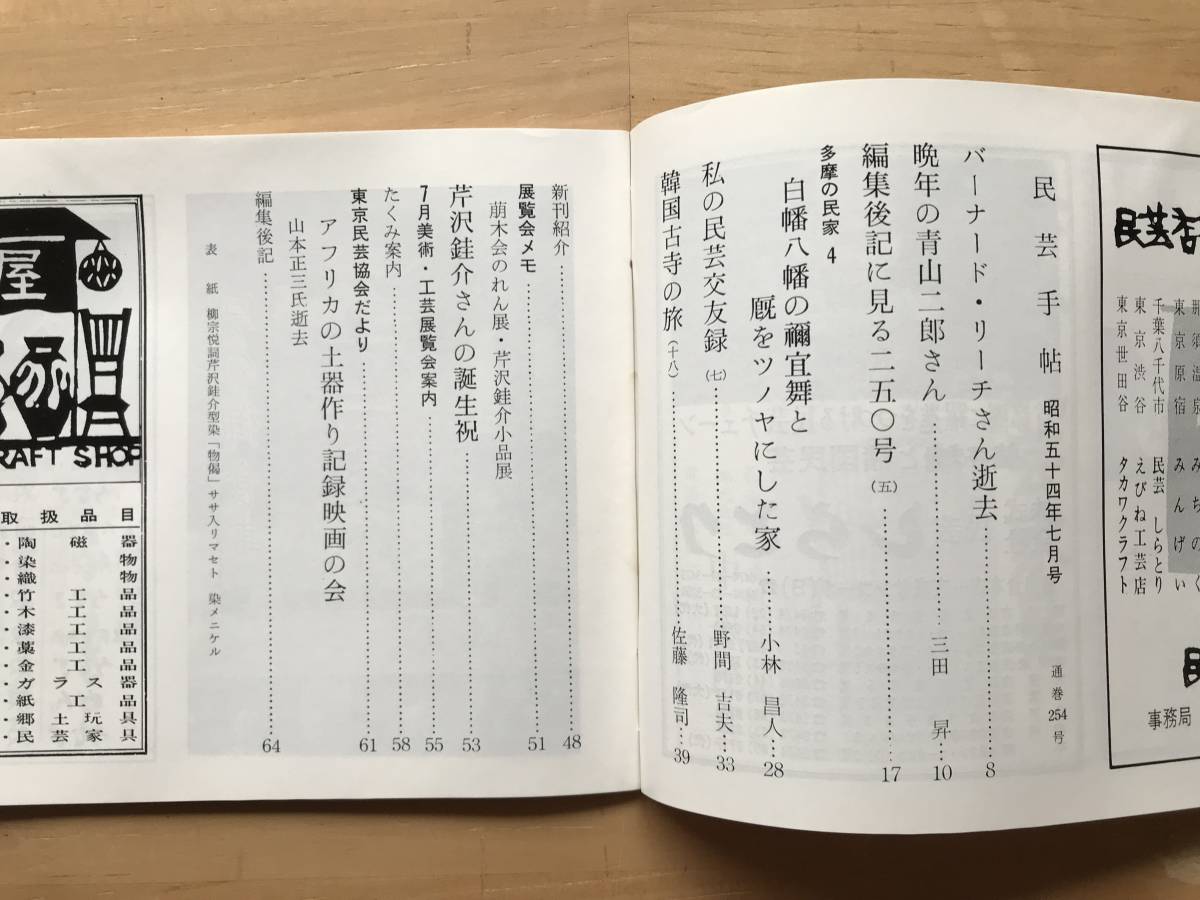 民芸店
那須温泉 みちのく
東京原宿 みんげい
千葉八千代市 民芸 しらとり
東京渋谷 えびね工芸店
東京世田谷 タカワクラフト
事務局
民芸手帖 昭和五十四年七月号 通巻254号
バーナード・リーチさん逝去 8
晩年の青山二郎さん 三田 昇 10
編集後記に見る二五〇号(五) 17
多摩の民家 4
白幡八幡の禰宜舞と
厩をツノヤにした家 小林 昌人 28
私の民芸交友録(七) 野間 吉夫 33
韓国古寺の旅(十八) 佐藤 隆司 39
新刊紹介 48
展覧会メモ 51
萠木会のれん展・芹沢銈介小品展
芹沢銈介さんの誕生祝 53
7月美術・工芸展覧会案内 55
たくみ案内 58
東京民芸協会だより 61
アフリカの土器作り記録映画の会
山本正三氏逝去
編集後記 64
表 紙 柳宗悦詞芹沢銈介型染「物偈」ササ入リマセト 染メニケル
屋
RAFT SHOP
取扱品目
・陶磁器
・染物
・織物
・竹工品
・木工品
・漆工品
・藁工品
・金工品
・ガラス器
・紙工品
・郷土玩具
・民芸家具